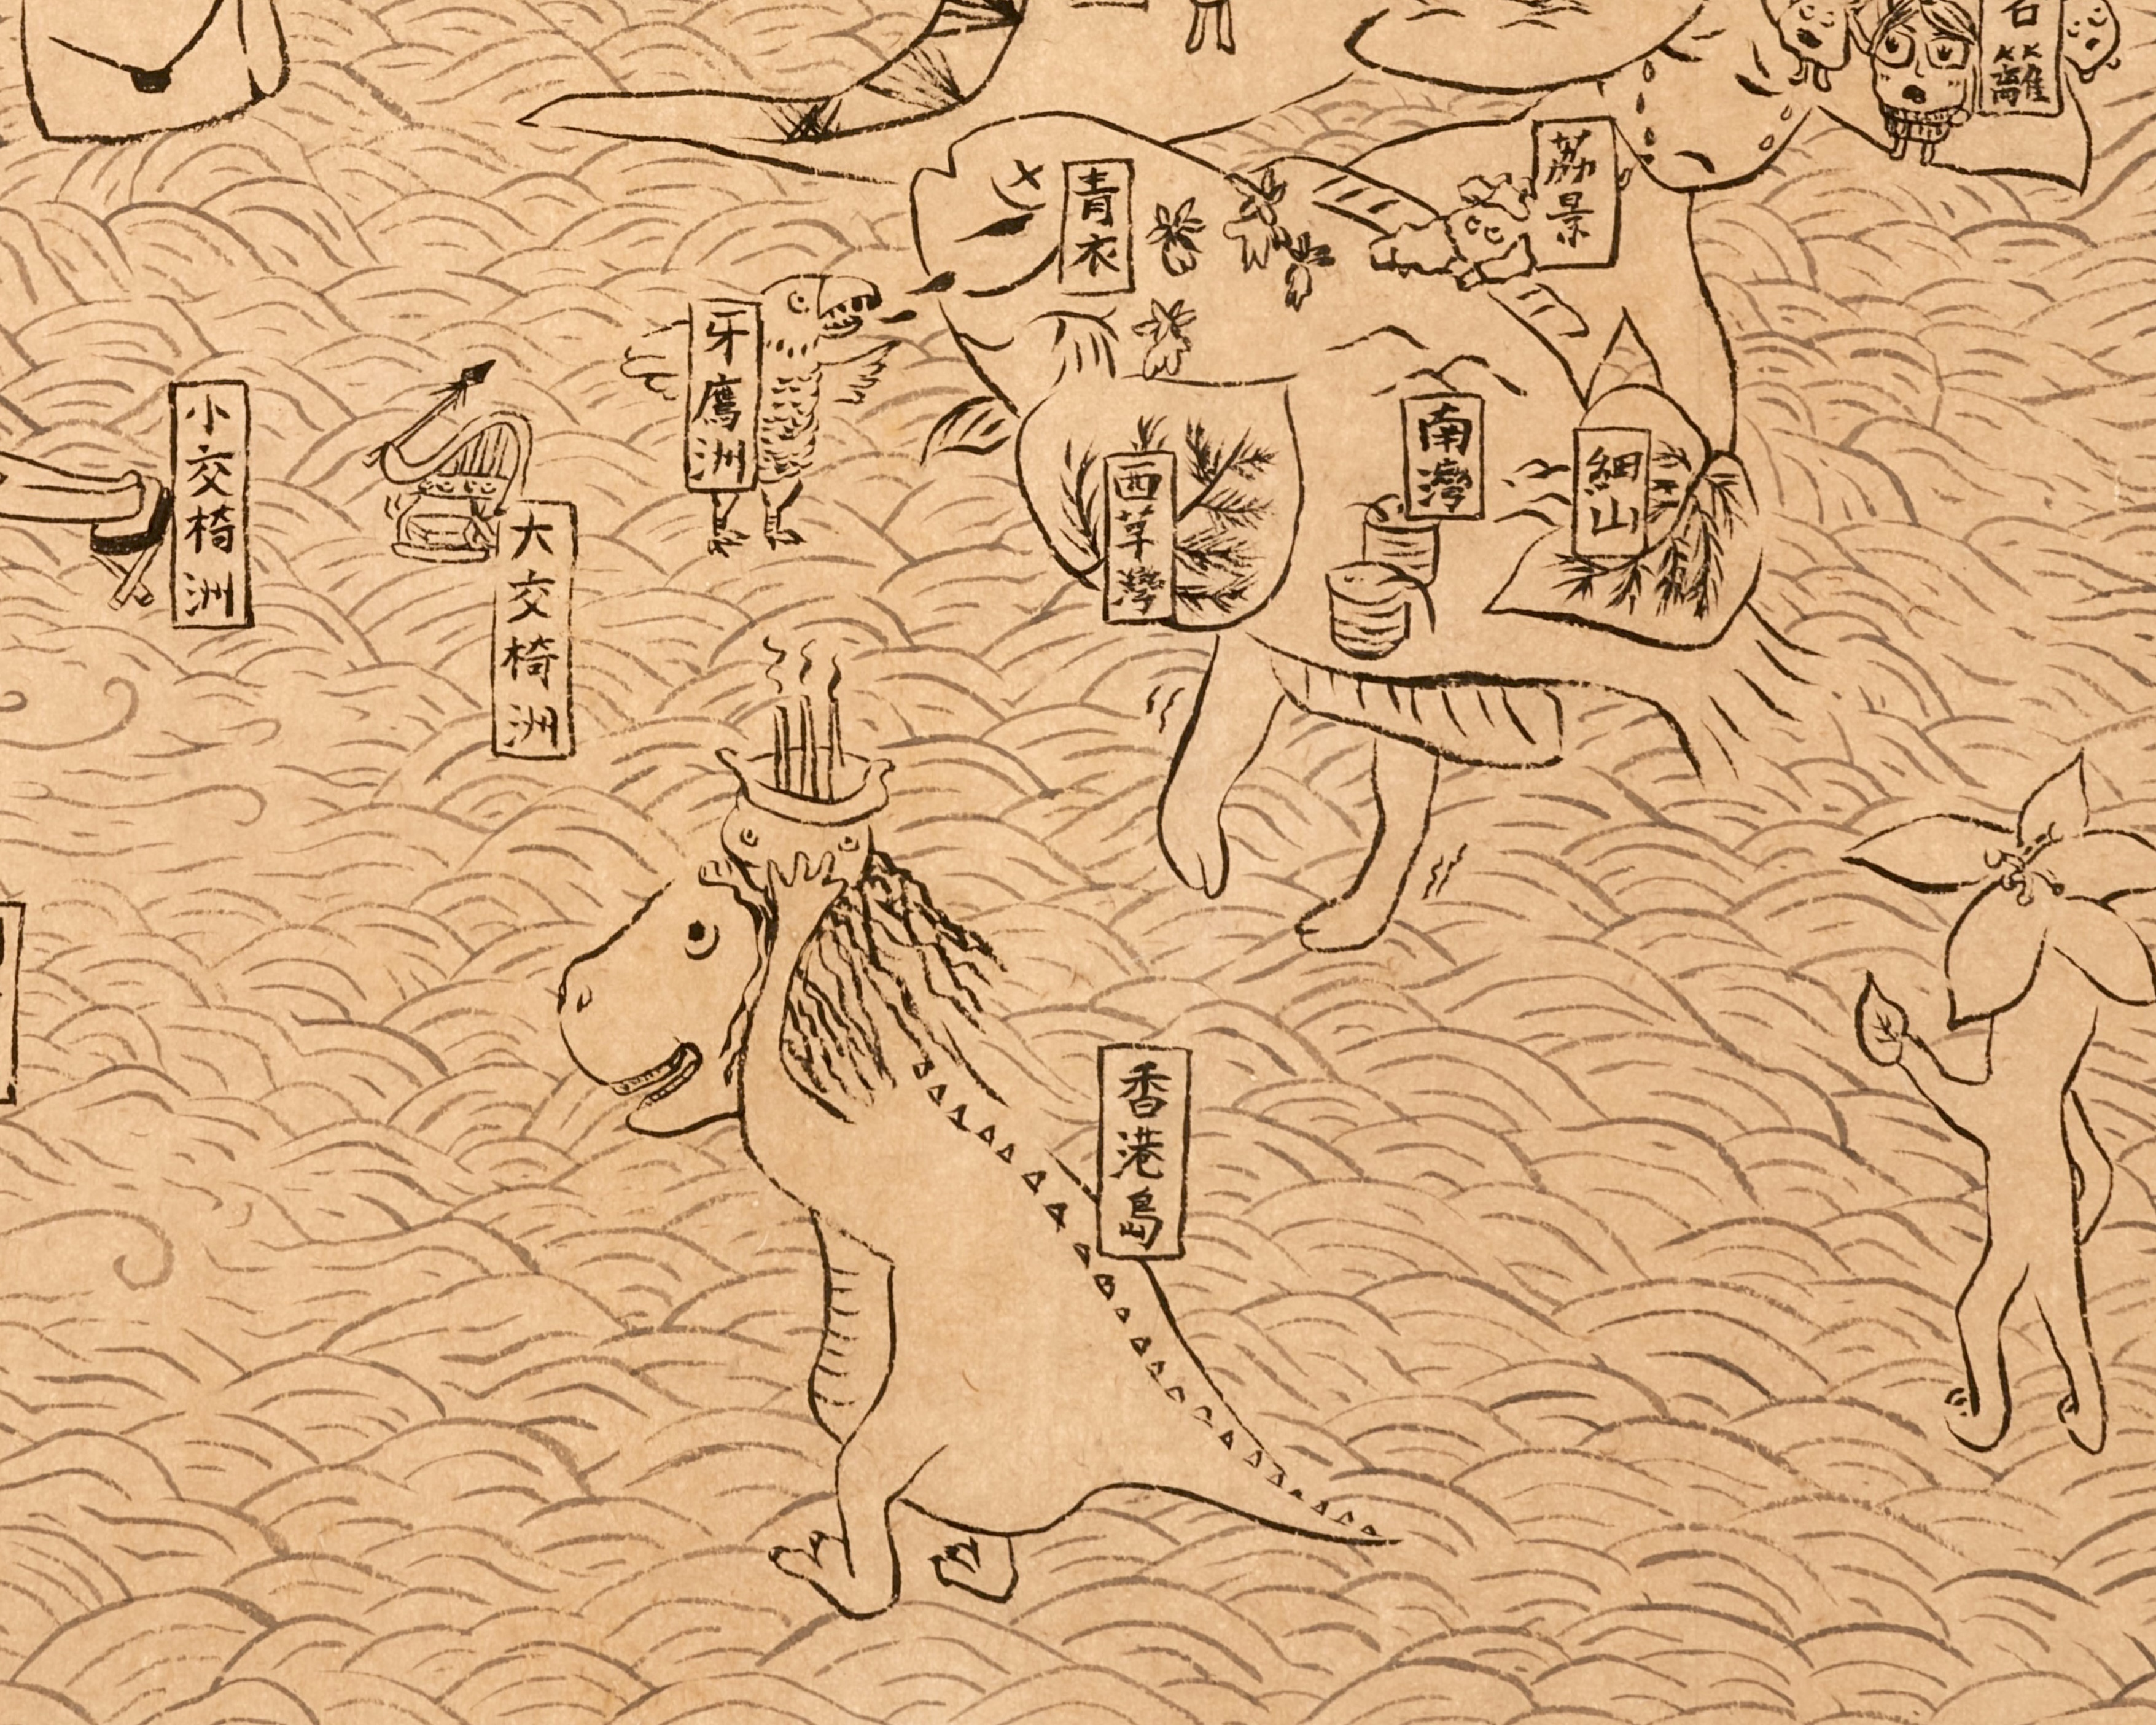 石籬
荔景
青衣
牙鷹洲
小交椅洲
大交椅洲
南灣
細山
西草灣
香港島